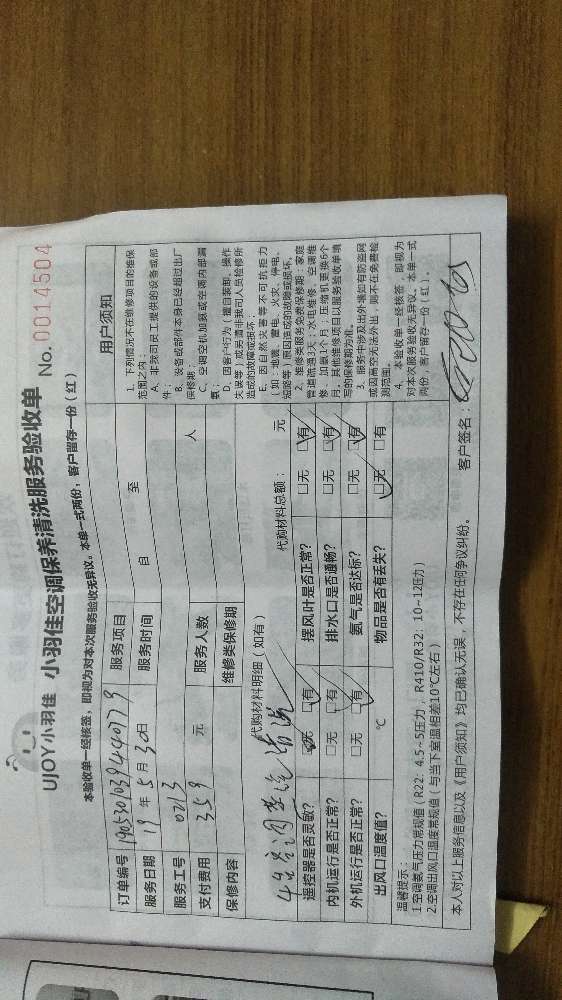 UJOY小羽佳 小羽佳空调保养清洗服务验收单 No. 0014504
本验收单一经核签，即视为对本次服务验收无异议。本单一式两份，客户留存一份（红）
订单编号 服务项目
服务日期 19 年 5 月 30 日 服务时间 自 至
服务工号 0213
支付费用 359 元 服务人数 人
保修内容 维修类保修期
代购材料明细（如有） 代购材料总额： 元
遥控器是否灵敏？ □无 □有 摆风叶是否正常？ □无 □有
内机运行是否正常？ □无 □有 排水口是否通畅？ □无 □有
外机运行是否正常？ □无 □有 氨气是否达标？ □无 □有
出风口温度值？ ℃ 物品是否有丢失？ □无 □有
用户须知
1、下列情况不在维修项目的维保
范围之内：
A、非我司员工提供的设备或部
件；
B、设备或部件本身已经超过出厂
保修期；
C、空调空机加氨或空调内部漏
氨；
D、因客户行为，擅自装卸、操作
失误等，原因请非我司人员检修所
造成的故障或损坏
E、因自然灾害等不可抗拒力
（如：地震、雷电、火灾、停电、
短路等）原因造成的故障或损坏。
2、维修类服务免费保修期：家庭
管道疏通3天，水电维修、空调维
修、加氨及1个月；压缩机更换6个
月，其他维修项目以服务验收单填
写的保修期为准。
3、服务中涉及出外墙如有防盗网
或因高空无法外出，则不在免费检
测范围。
4、本验收单一经核签，即视为
对本次服务验收无异议。本单一式
两份，客户留存一份（红）。
温馨提示：
1.空调氨气压力常规值（R22：4.5~5压力，R410/R32：10~12压力）
2.空调出风口温度常规值（与当下室温相差10℃左右）
本人对以上服务信息以及《用户须知》均已确认无误，不存在任何争议纠纷。 客户签名：